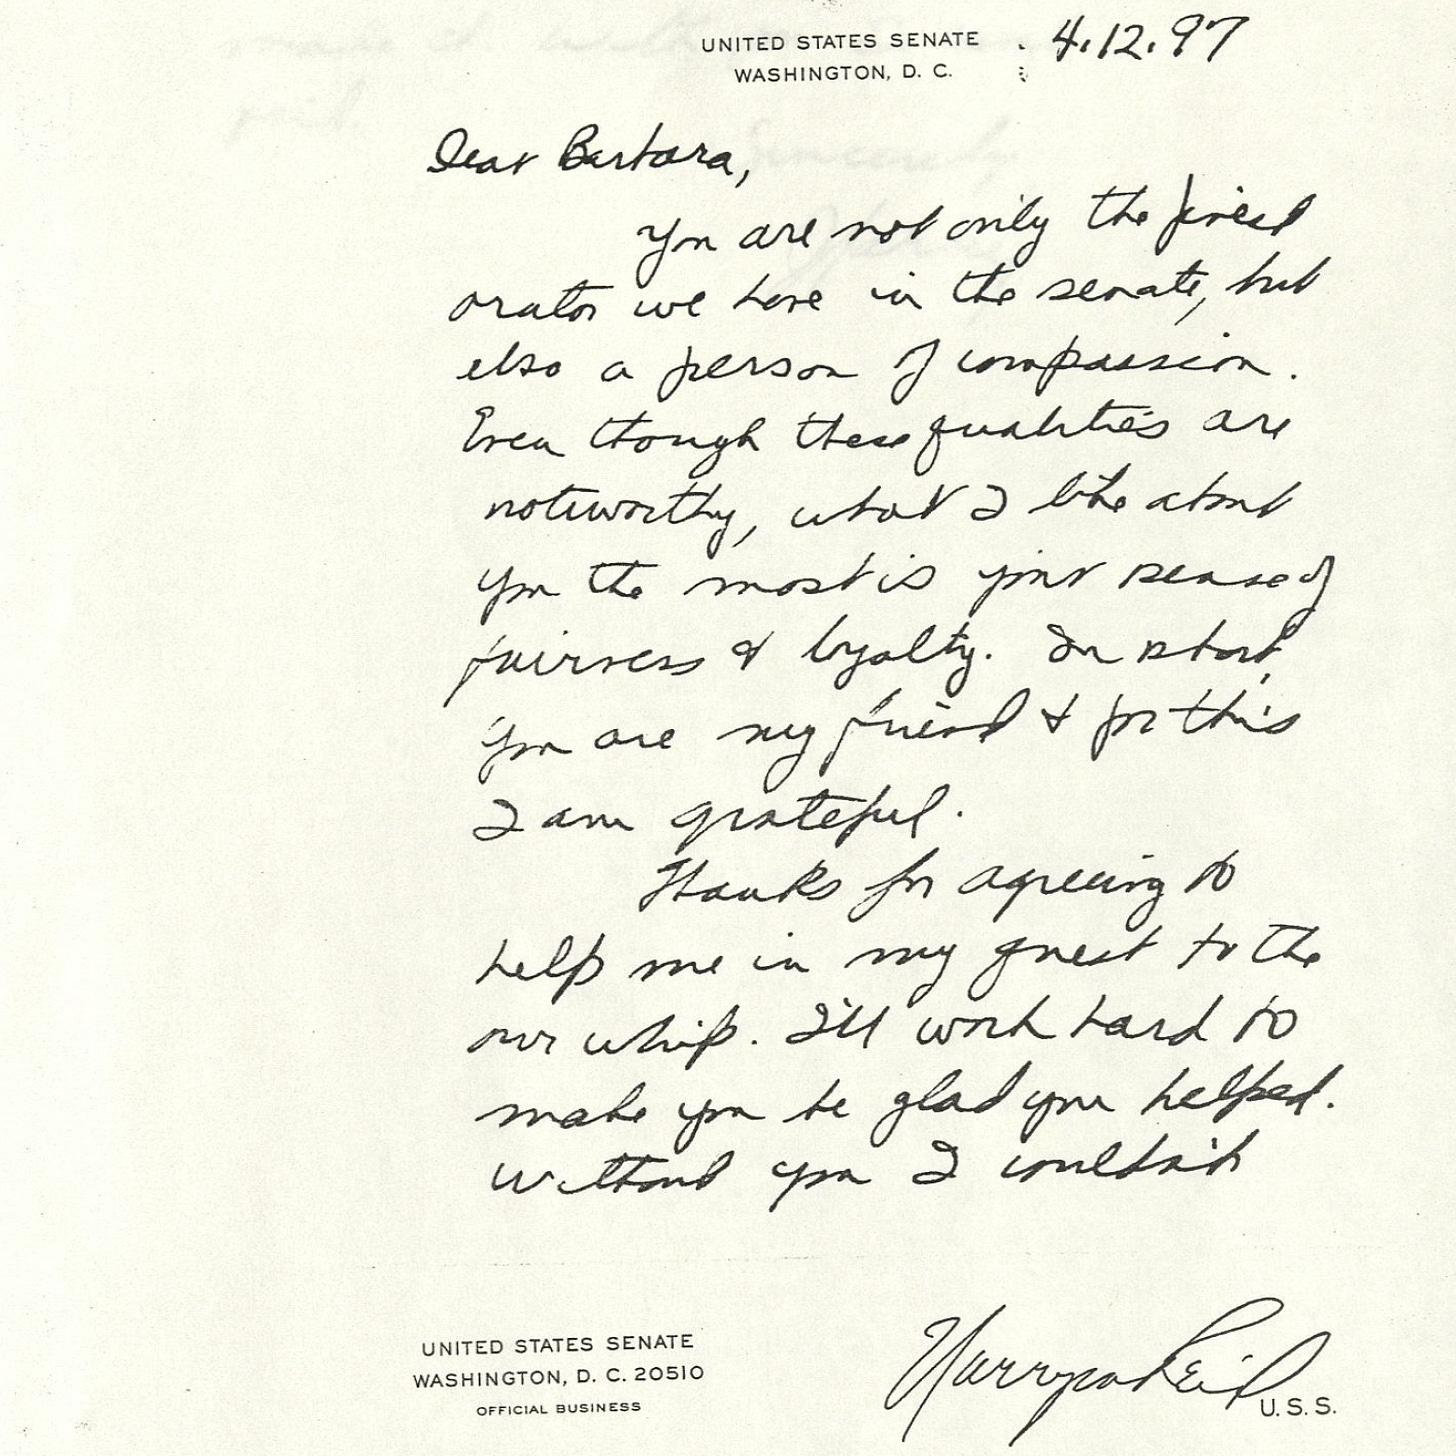 UNITED STATES SENATE
WASHINGTON, D. C.
4.12.97
Dear Barbara,
You are not only the finest
orator we have in the senate, but
also a person of compassion.
Even though these qualities are
noteworthy, what I like about
you the most is your sense of
fairness & loyalty. In short,
you are my friend & for this
I am grateful.
Thanks for agreeing to
help me in my quest to the
our whip. I'll work hard to
make you be glad you helped.
Without you I couldn't
UNITED STATES SENATE
WASHINGTON, D. C. 20510
OFFICIAL BUSINESS
Harry Reid
U. S. S.